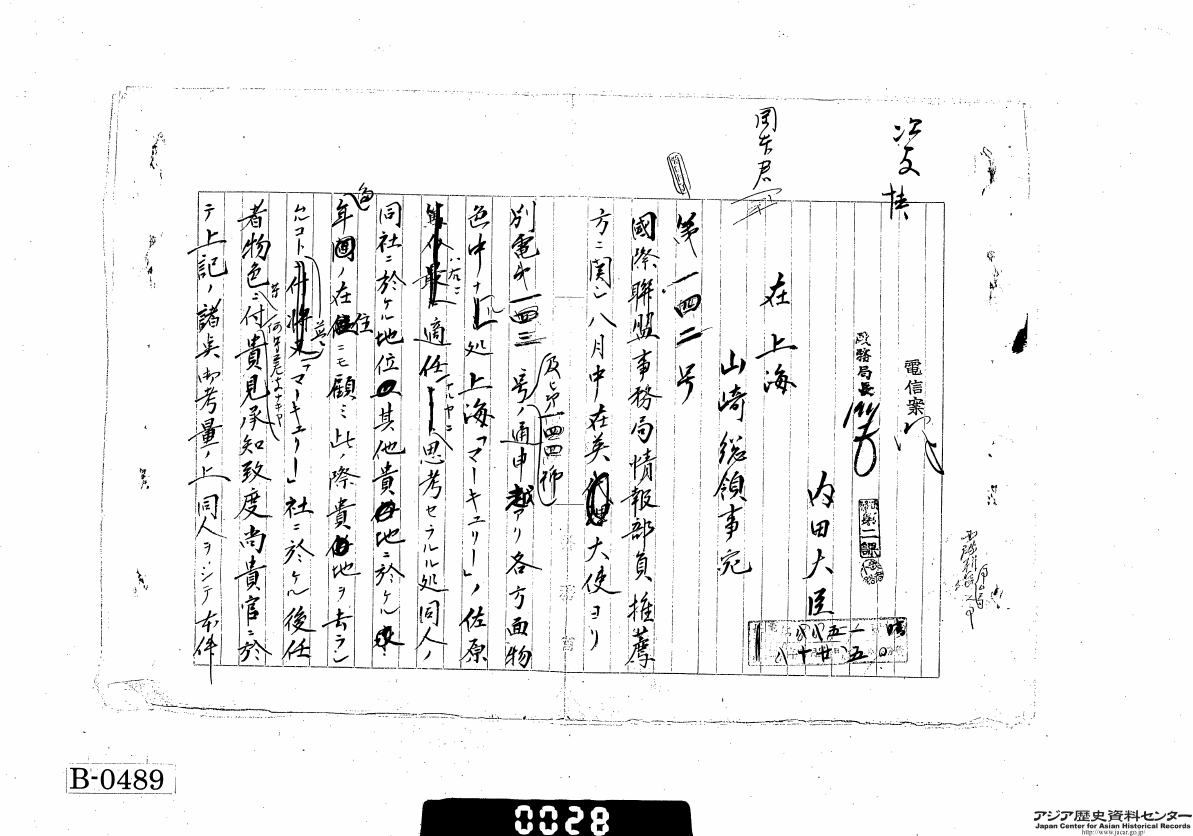 電信案
政務局長
第二課
内田大臣
在上海
山崎総領事宛
第一四二号
國際聯盟事務局情報部員推薦
方ニ関シ八月中在英大使ヨリ
別電第一四三号及第一四四號ノ通申越アリ各方面物
色中ナル処上海「マーキュリー」ノ佐原
適任ナルヤニ思考セラルル処同人ノ
同社ニ於ケル地位其他貴地ニ於ケル
多年ノ在住ニモ顧ミ此ノ際貴地ヲ去ラシ
ムルコト並ニ「マーキュリー」社ニ於ケル後任
者物色ニ付貴見承知致度尚貴官ニ於
テ上記ノ諸点御考量ノ上同人ヲシテ本件
B-0489
0028
アジア歴史資料センター
Japan Center for Asian Historical Records
http://www.jacar.go.jp/